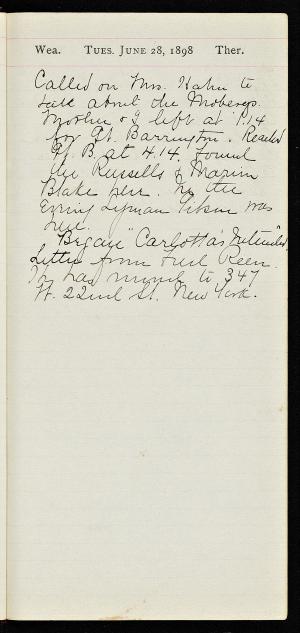 Wea. TUES. JUNE 28, 1898 Ther.
Called on Mrs. Hahn to
talk about the Mobergs.
Mother & I left at 1.14
for Gt. Barrington. Reached
Gt. B. at 4.14. Found
the Russells & Marion
Blake here. In the
Evning Lyman Gibson was
here.
Began "Carlotta's Intended"
Letter from Fred Keen.
He has moved to 347
W. 22nd St. New York.